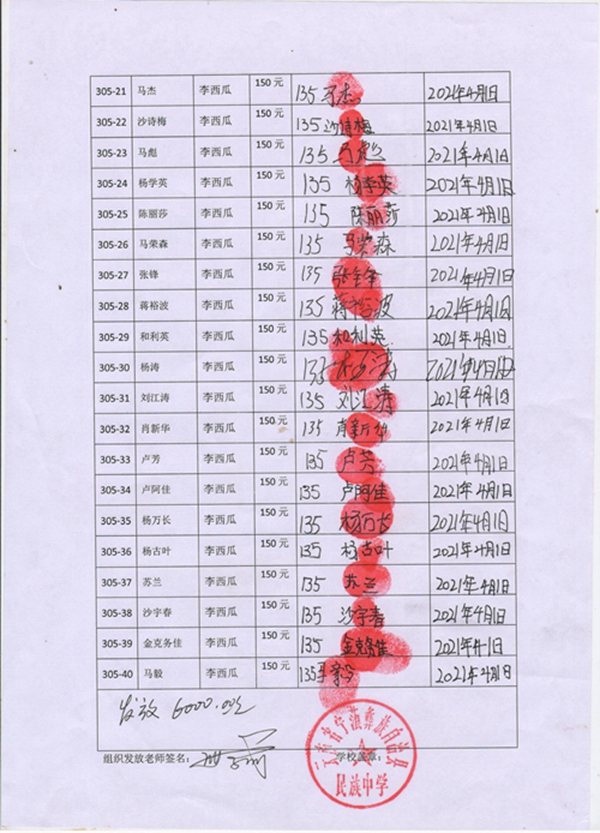 305-21 马杰 李西瓜 150 元 135 马杰 2021年4月1日
305-22 沙诗梅 李西瓜 150 元 135 沙诗梅 2021年4月1日
305-23 马彪 李西瓜 150 元 135 马彪 2021年4月1日
305-24 杨学英 李西瓜 150 元 135 杨学英 2021年4月1日
305-25 陈丽莎 李西瓜 150 元 135 陈丽莎 2021年4月1日
305-26 马荣森 李西瓜 150 元 135 马荣森 2021年4月1日
305-27 张锋 李西瓜 150 元 135 张锋 2021年4月1日
305-28 蒋裕波 李西瓜 150 元 135 蒋裕波 2021年4月1日
305-29 和利英 李西瓜 150 元 135 和利英 2021年4月1日
305-30 杨涛 李西瓜 150 元 135 杨涛 2021年4月1日
305-31 刘江涛 李西瓜 150 元 135 刘江涛 2021年4月1日
305-32 肖新华 李西瓜 150 元 135 肖新华 2021年4月1日
305-33 卢芳 李西瓜 150 元 135 卢芳 2021年4月1日
305-34 卢阿佳 李西瓜 150 元 135 卢阿佳 2021年4月1日
305-35 杨万长 李西瓜 150 元 135 杨万长 2021年4月1日
305-36 杨古叶 李西瓜 150 元 135 杨古叶 2021年4月1日
305-37 苏兰 李西瓜 150 元 135 苏兰 2021年4月1日
305-38 沙宇春 李西瓜 150 元 135 沙宇春 2021年4月1日
305-39 金克务佳 李西瓜 150 元 135 金克务佳 2021年4月1日
305-40 马毅 李西瓜 150 元 135 2021年4月1日
发放 6000.00元
组织发放老师签名： 学校盖章：
云南省宁蒗彝族自治县
民族中学